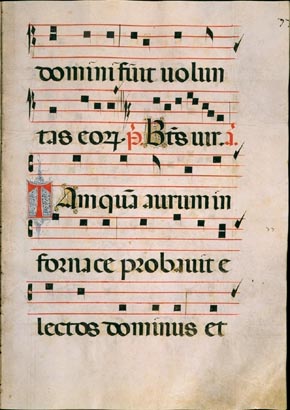 domini fuit uolun
tas eoꝝ. p̄s. Bt̄s uir. a.
Tamquā aurum in
fornace probauit e
lectos dominus et